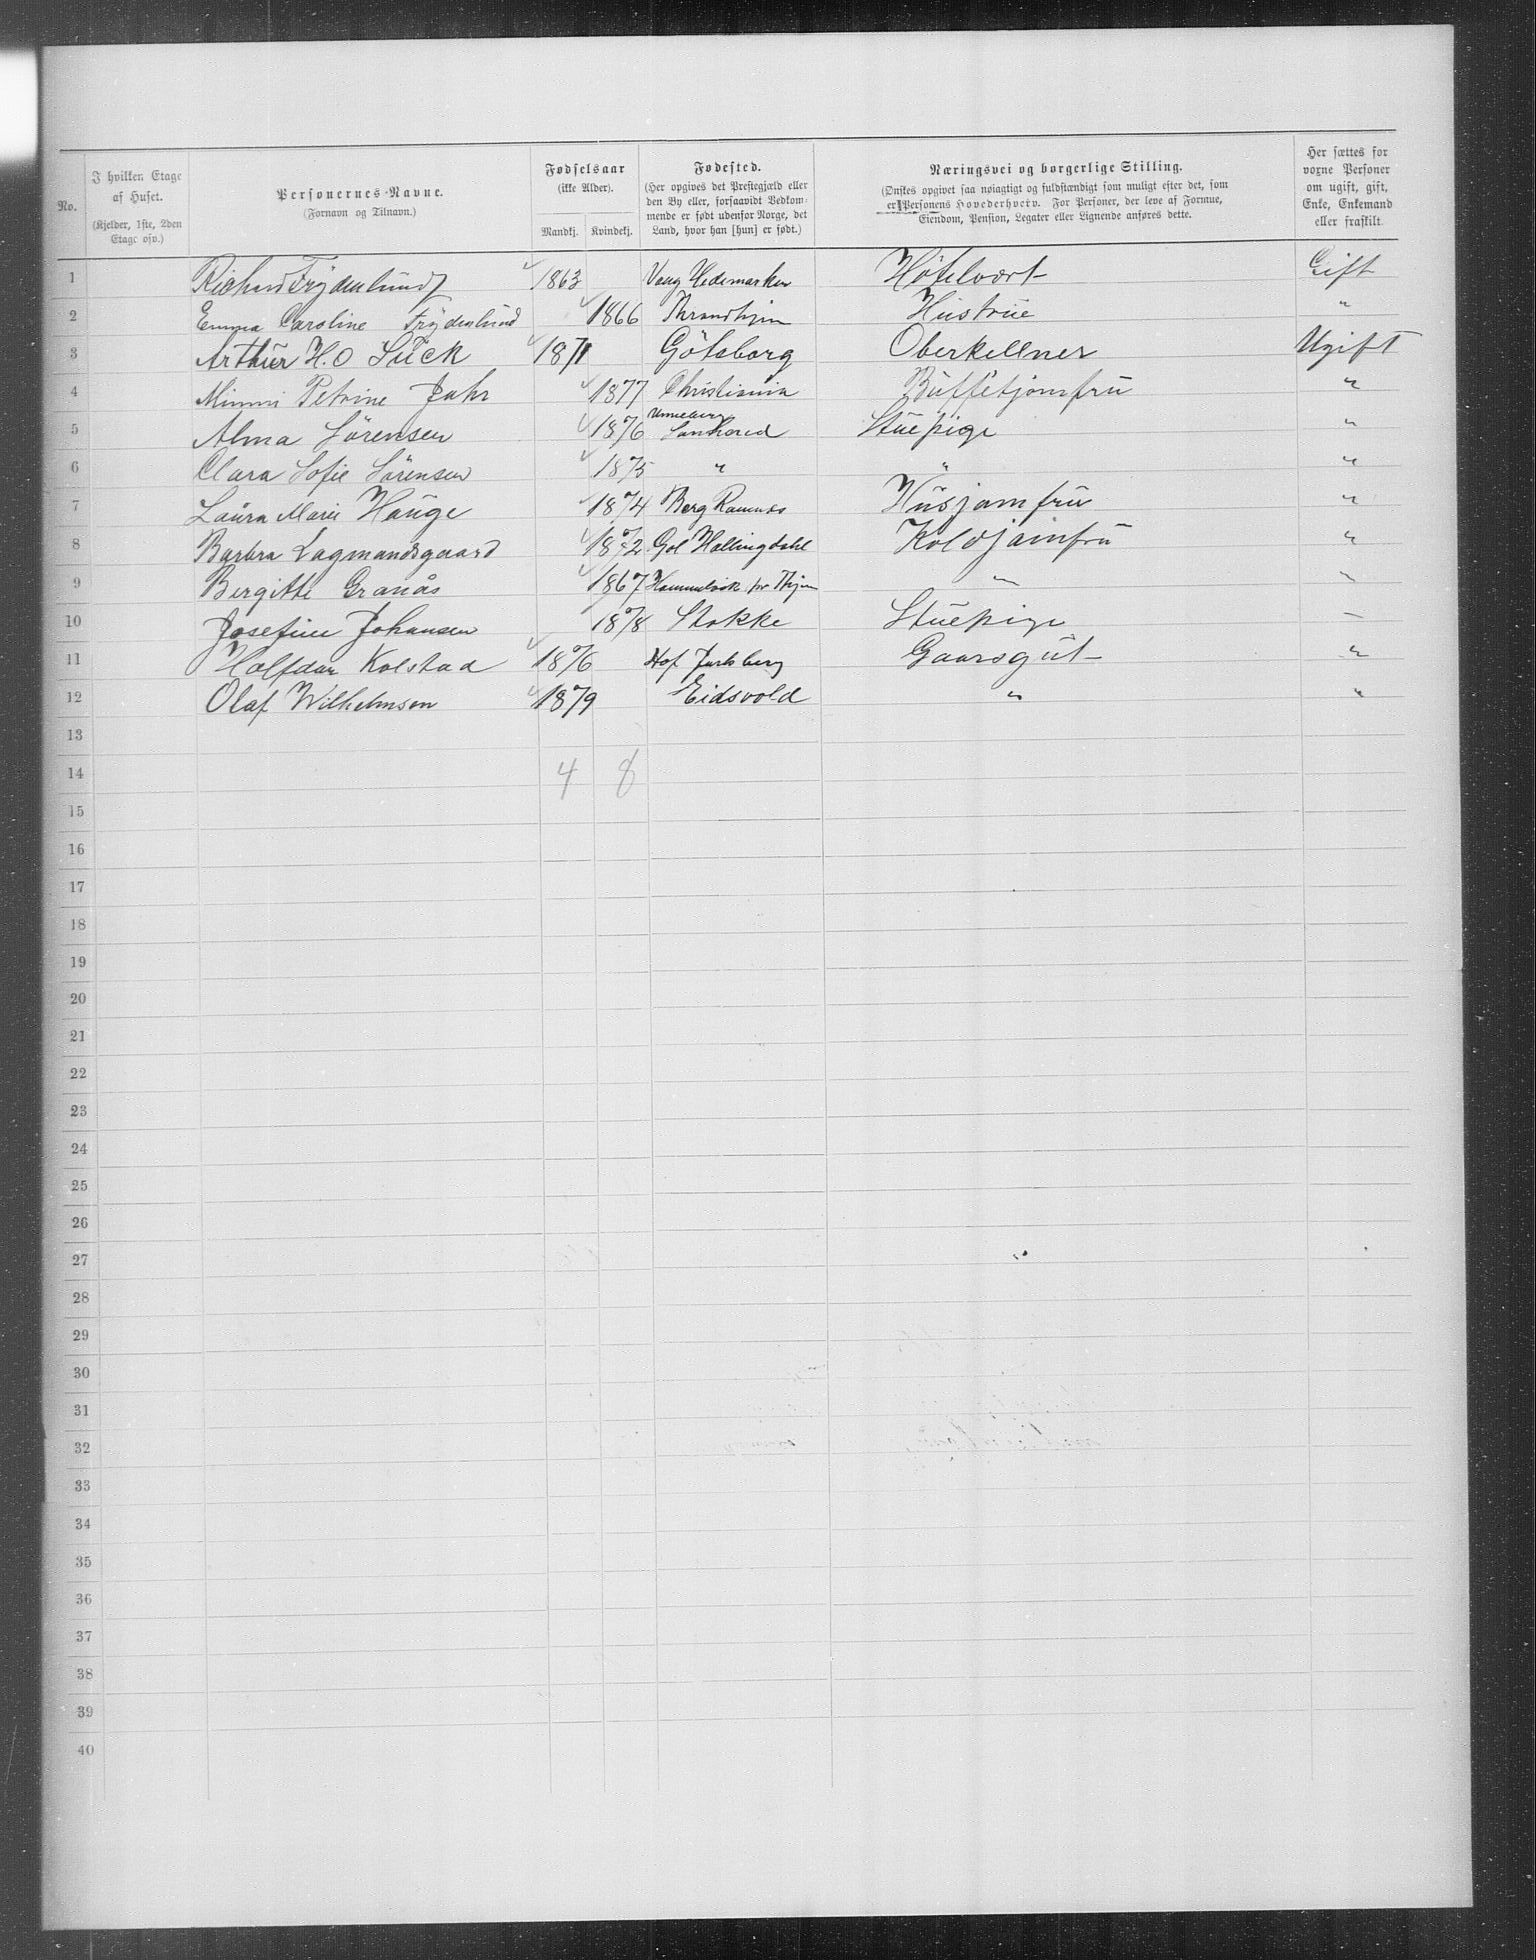 No.
I hvilken Etage af Huset.
(Kjelder, 1ste, 2den Etage osv.)
Personernes Navne.
(Fornavn og Tilnavn.)
Fødselsaar
(ikke Alder).
Mandkj. Kvindekj.
Fødested.
(Her opgives det Prestegjæld eller den By eller, forsaavidt Vedkommende er født udenfor Norge, det Land, hvor han [hun] er født.)
Næringsvei og borgerlige Stilling.
(Ønskes opgivet saa nøiagtigt og fuldstændigt som muligt efter det, som er Personens Hovederhverv. For Personer, der leve af Formue, Eiendom, Pension, Legater eller Lignende anføres dette.
Her sættes for vorne Personer om ugift, gift, Enke, Enkemand eller fraskilt.
1 Richard Frydenlund 1863 Vang Hedemarken Hôtelvært Gift
2 Emma Caroline Frydenlund 1866 Throndhjem Hustrue "
3 Arthur H. O Lück 1871 Göteborg Oberkellner Ugift
4 Mimmi Petrine Jahr 1877 Christiania Buffetjomfru "
5 Alma Sörensen 1876 Unneberg Sanherred Stuepige "
6 Clara Sofie Sörensen 1875 " " "
7 Laura Marie Hauge 1874 Berg Ramnes Husjomfru "
8 Barbra Lagmandsgaard 1872 Gol Hallingdahl Koldjomfru "
9 Bergitte Granås 1867 Hommelvik pr Thjem " "
10 Josefine Johansen 1878 Stokke Stuepige –
11 Halfdan Kolstad 1876 Hof Jarlsberg Gaarsgut "
12 Olaf Wilhelmsen 1879 Eidsvold " "
13
14 4 8
15
16
17
18
19
20
21
22
23
24
25
26
27
28
29
30
31
32
33
34
35
36
37
38
39
40